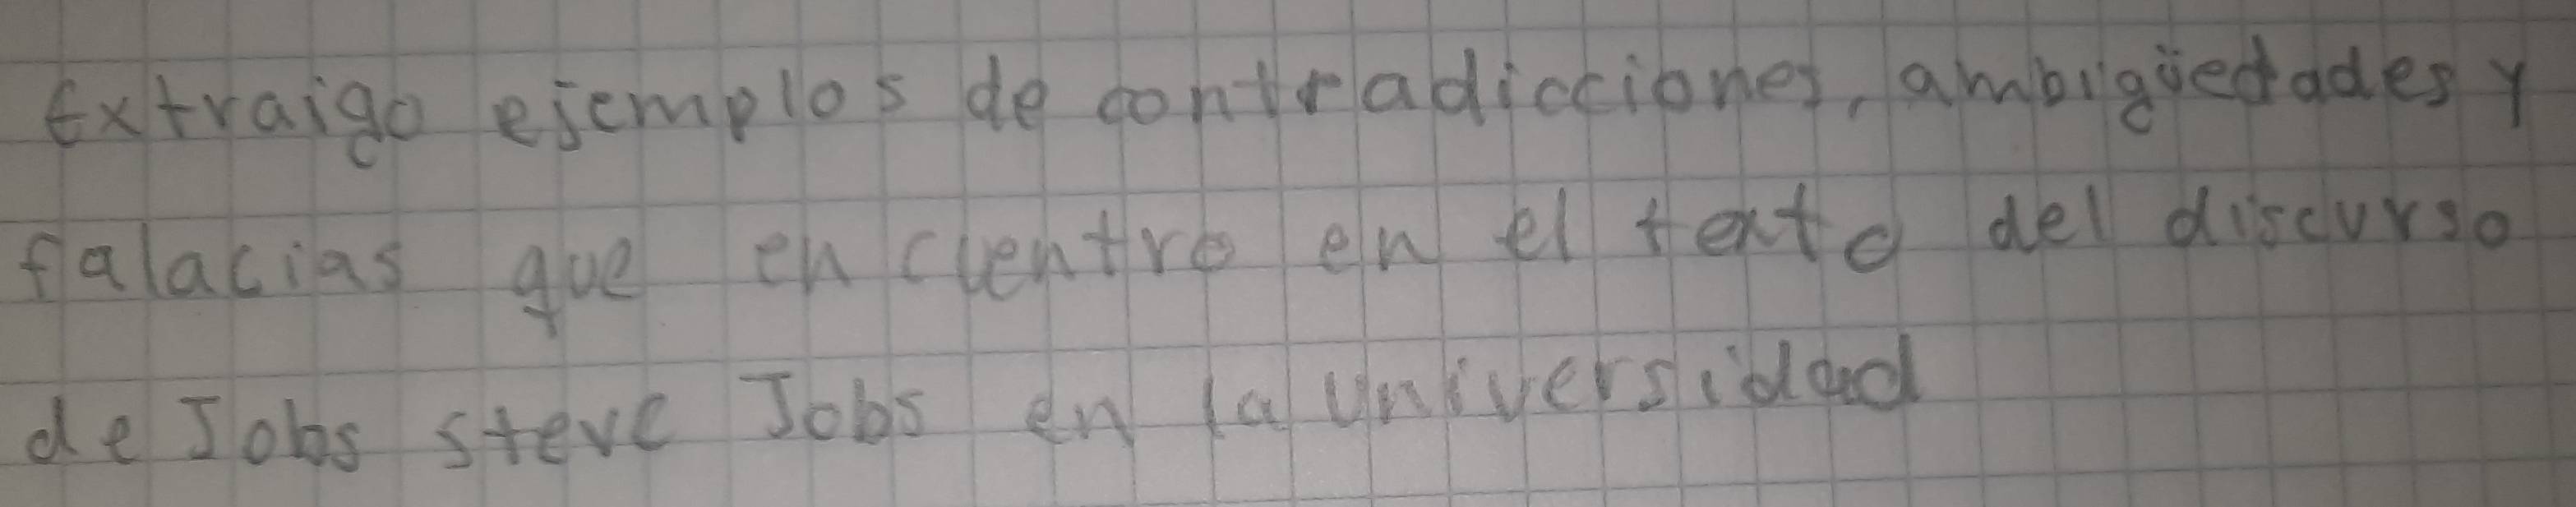 Extraigo ejemplos de contradicciones, ambigüedades y
falacias que encuentro en el texto del discurso
de Jobs steve Jobs en la universidad